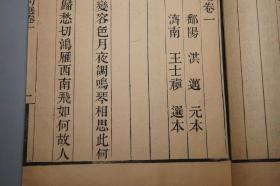 卷一
鄱陽 洪 邁 元本
濟南 王士禛 選本
變容色月夜調鳴琴相思此何
歸愁切鴻雁西南飛如何故人
句選卷一